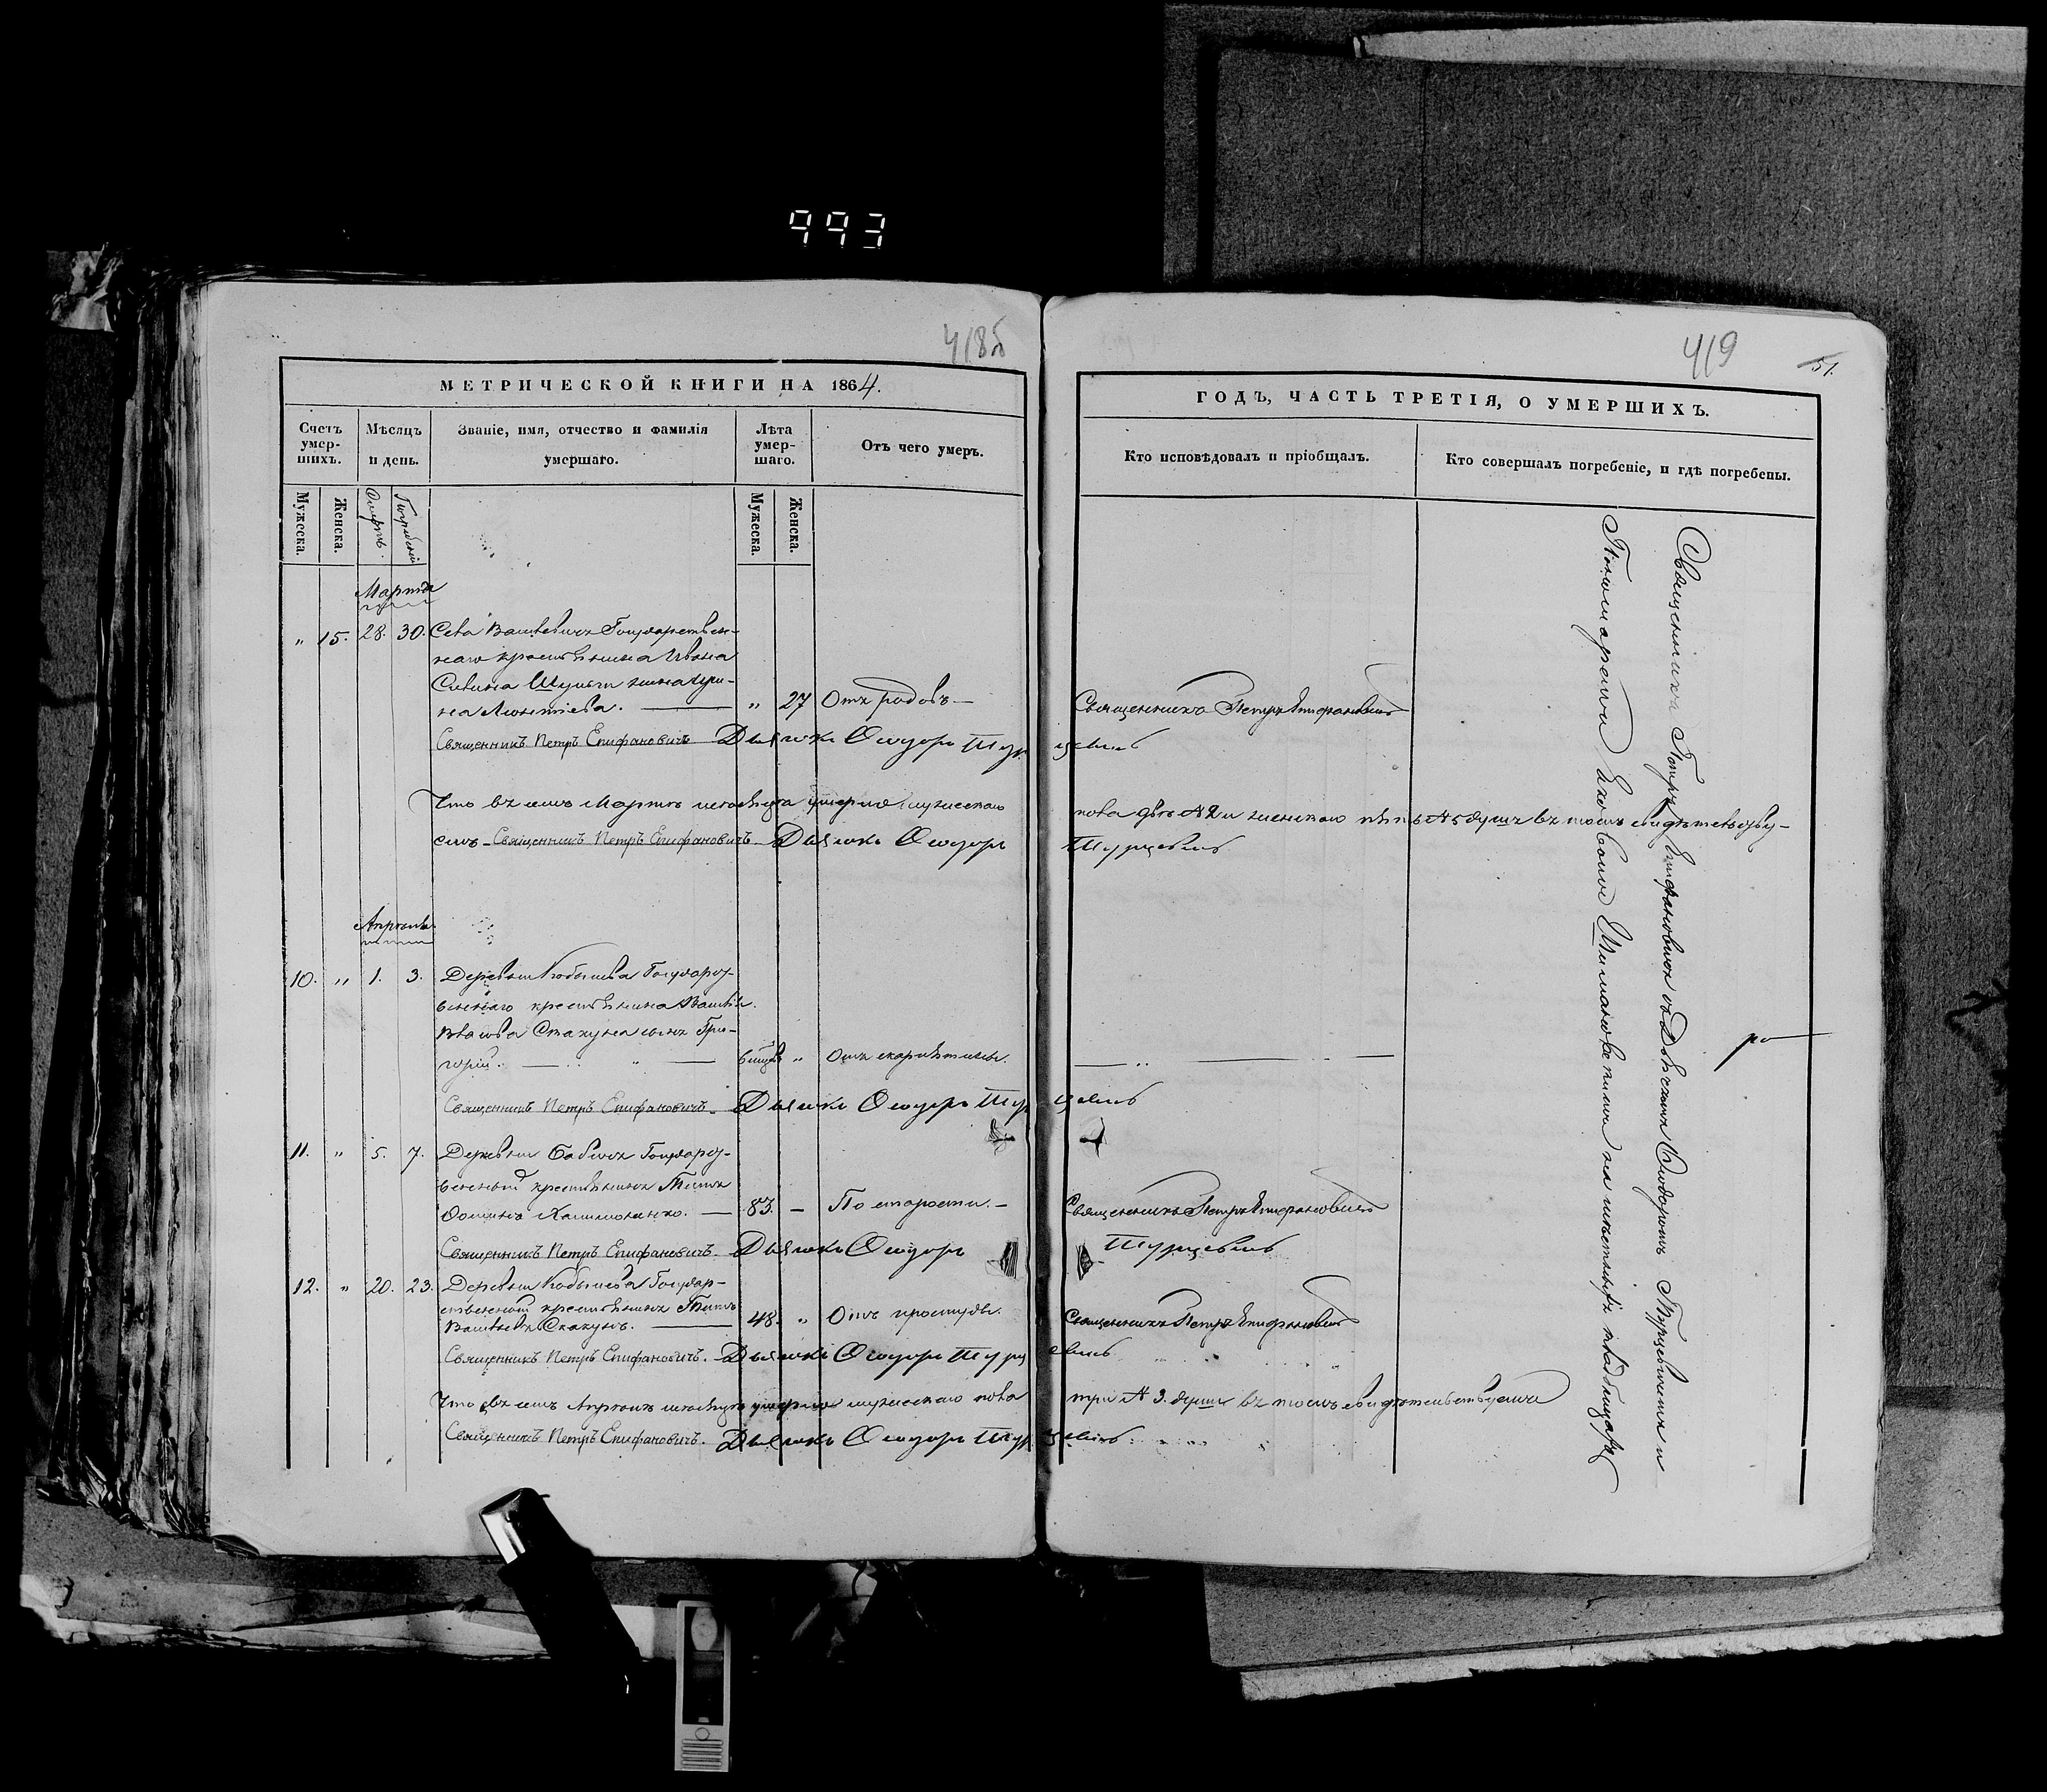 993
418б
419
51.
МЕТРИЧЕСКОЙ КНИГИ НА 1864.
ГОДЪ, ЧАСТЬ ТРЕТІЯ, О УМЕРШИХЪ.
Счетъ умер-шихъ.
Мѣсяцъ и день.
Званіе, имя, отчество и фамилія умершаго.
Лѣта умер-шаго.
Отъ чего умеръ.
Кто исповѣдовалъ и пріобщалъ.
Кто совершалъ погребеніе, и гдѣ погребены.
Мужеска.
Женска.
Смерть.
Погребенія
Мужеска.
Женска.
Марта
„ 15. 28. 30. Села Государствен-
наго крестьянина Ивана
Савина жена Ири-
на Леонтіева. „ 27 Отъ родовъ Священникъ Петръ Епифановичъ
Священникъ Петръ Епифановичъ Дьячокъ Ѳеодоръ Турцевичъ
Что въ семъ Мартѣ мѣсяцѣ умерло мужескаго пола двѣ № 2 и женскаго пять № 5 душъ въ томъ свидѣтельству-
емъ Священникъ Петръ Епифановичъ Дьячокъ Ѳеодоръ Турцевичъ
Апрѣль
10. „ 1. 3. Деревни Кобылева Государ-
веннаго крестьянина
Скакуна сынъ Гри-
горій. „ Отъ скарлятины.
Священникъ Петръ Епифановичъ Дьячокъ Ѳеодоръ Турцевичъ
11. „ 5. 7. Деревни Государ-
венный крестьянинъ Титъ
83. – По старости. – Священникъ Петръ Епифановичъ
Священникъ Петръ Епифановичъ Дьячокъ Ѳеодоръ Турцевичъ
12. „ 20. 23. Деревни Кобылева Государ-
ственный крестьянинъ Титъ
Скакунъ. 48. „ Отъ простуды. Священникъ Петръ Епифановичъ
Священникъ Петръ Епифановичъ. Дьячокъ Ѳеодоръ Турцевичъ
Что въ семъ Апрѣлѣ мѣсяцѣ умерло мужескаго пола три № 3. души въ томъ свидѣтельствуемъ
Священникъ Петръ Епифановичъ. Дьячокъ Ѳеодоръ Турцевичъ
Священникъ Петръ Епифановичъ съ Дьячкомъ Ѳеодоромъ Турцевичемъ и
Пономаремъ на кладбищахъ